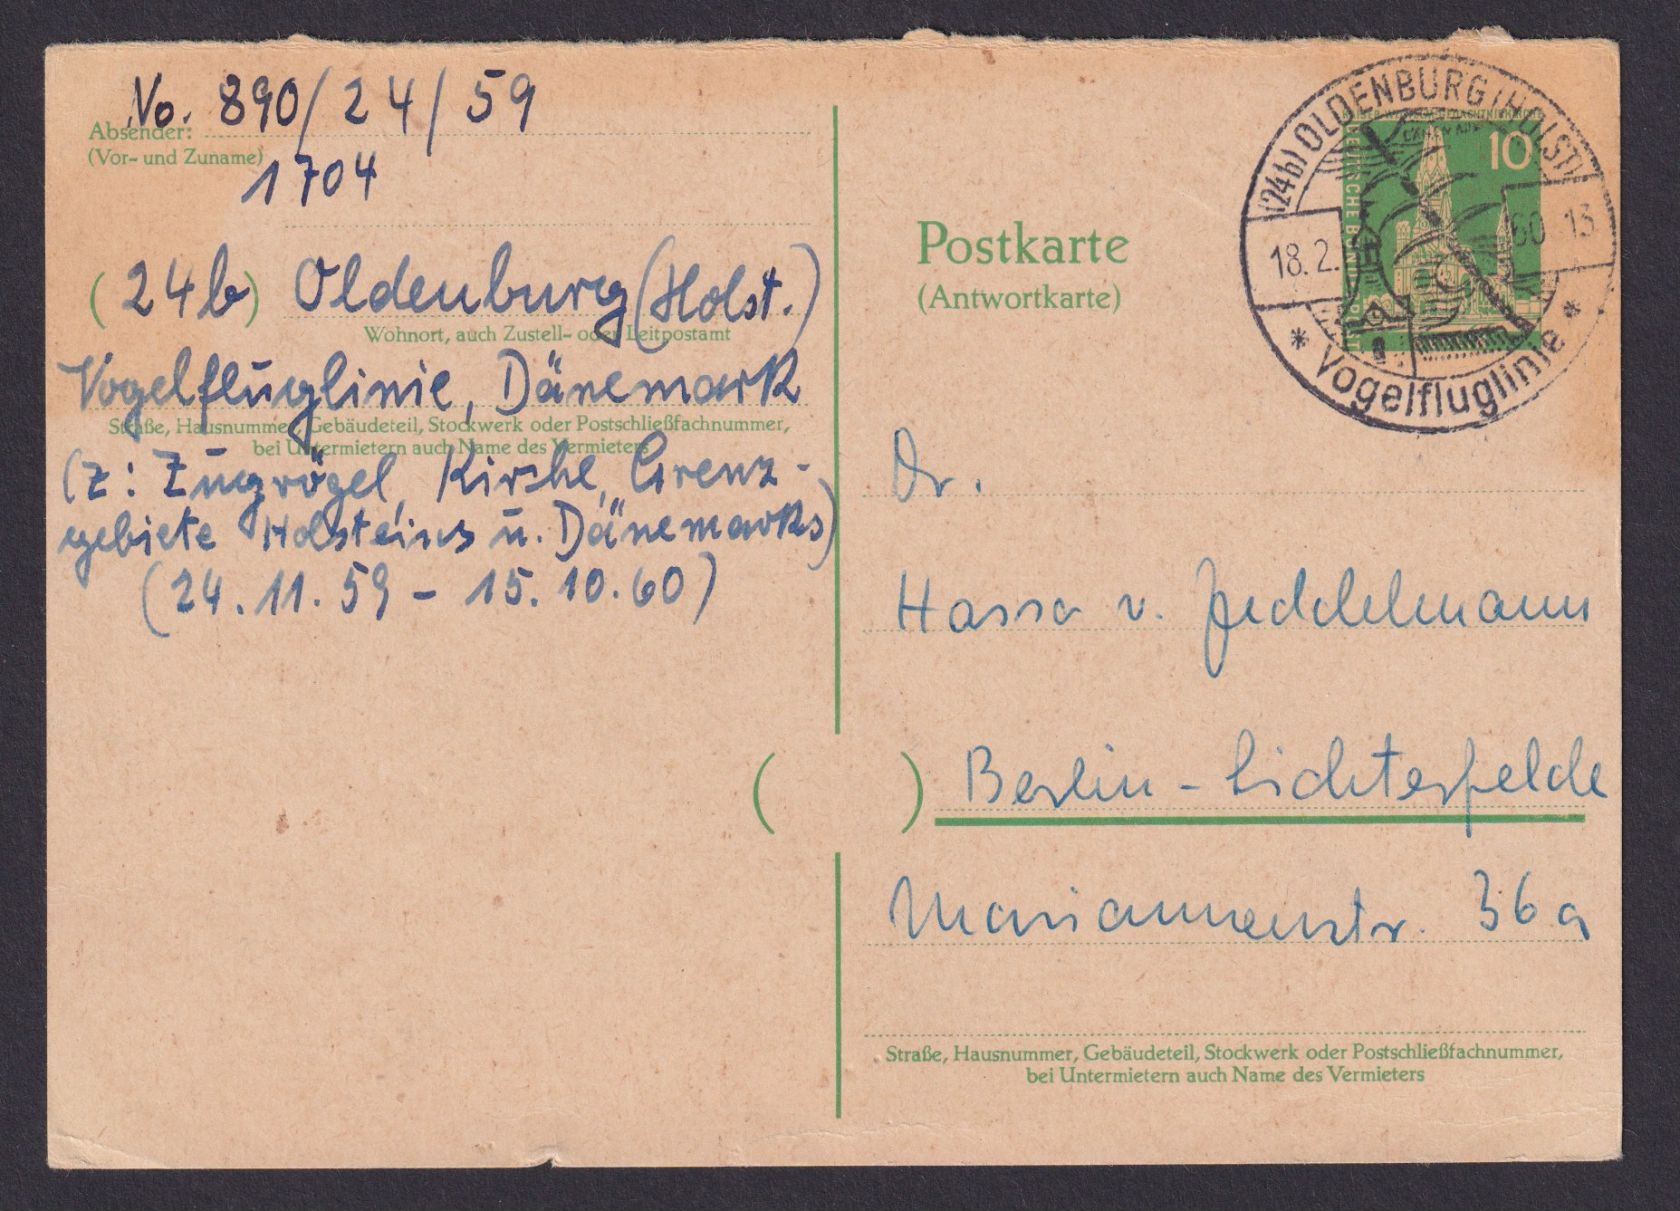 No. 890/24/59
Absender:
(Vor- und Zuname)
1704
(24b) Oldenburg (Holst.)
Wohnort, auch Zustell- oder Leitpostamt
Vogelfluglinie, Dänemark
Straße, Hausnummer, Gebäudeteil, Stockwerk oder Postschließfachnummer,
bei Untermietern auch Name des Vermieters
(Z: Zugvögel, Kirche, Grenz-
gebiete Holsteins u. Dänemarks)
(24.11.59 - 15.10.60)
Postkarte
(Antwortkarte)
10
DEUTSCHE BUNDESPOST
(24b) OLDENBURG (HOLST)
18.2. 60 13
* Vogelfluglinie *
Dr.
Hasso v. Zeddelmann
( ) Berlin-Lichterfelde
Mariannenstr. 36a
Straße, Hausnummer, Gebäudeteil, Stockwerk oder Postschließfachnummer,
bei Untermietern auch Name des Vermieters